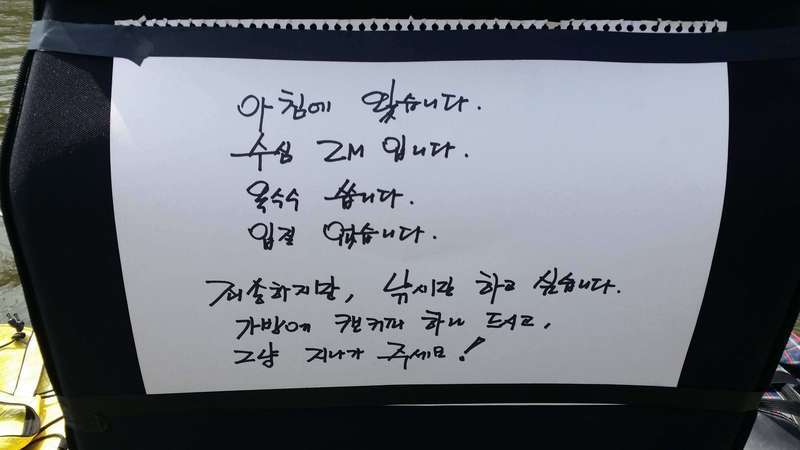 아침에 왔습니다.
수심 2M 입니다.
옥수수 씁니다.
입질 없습니다.
죄송하지만, 낚시만 하고 싶습니다.
가방에 캔커피 하나 드시고,
그냥 지나가 주세요!